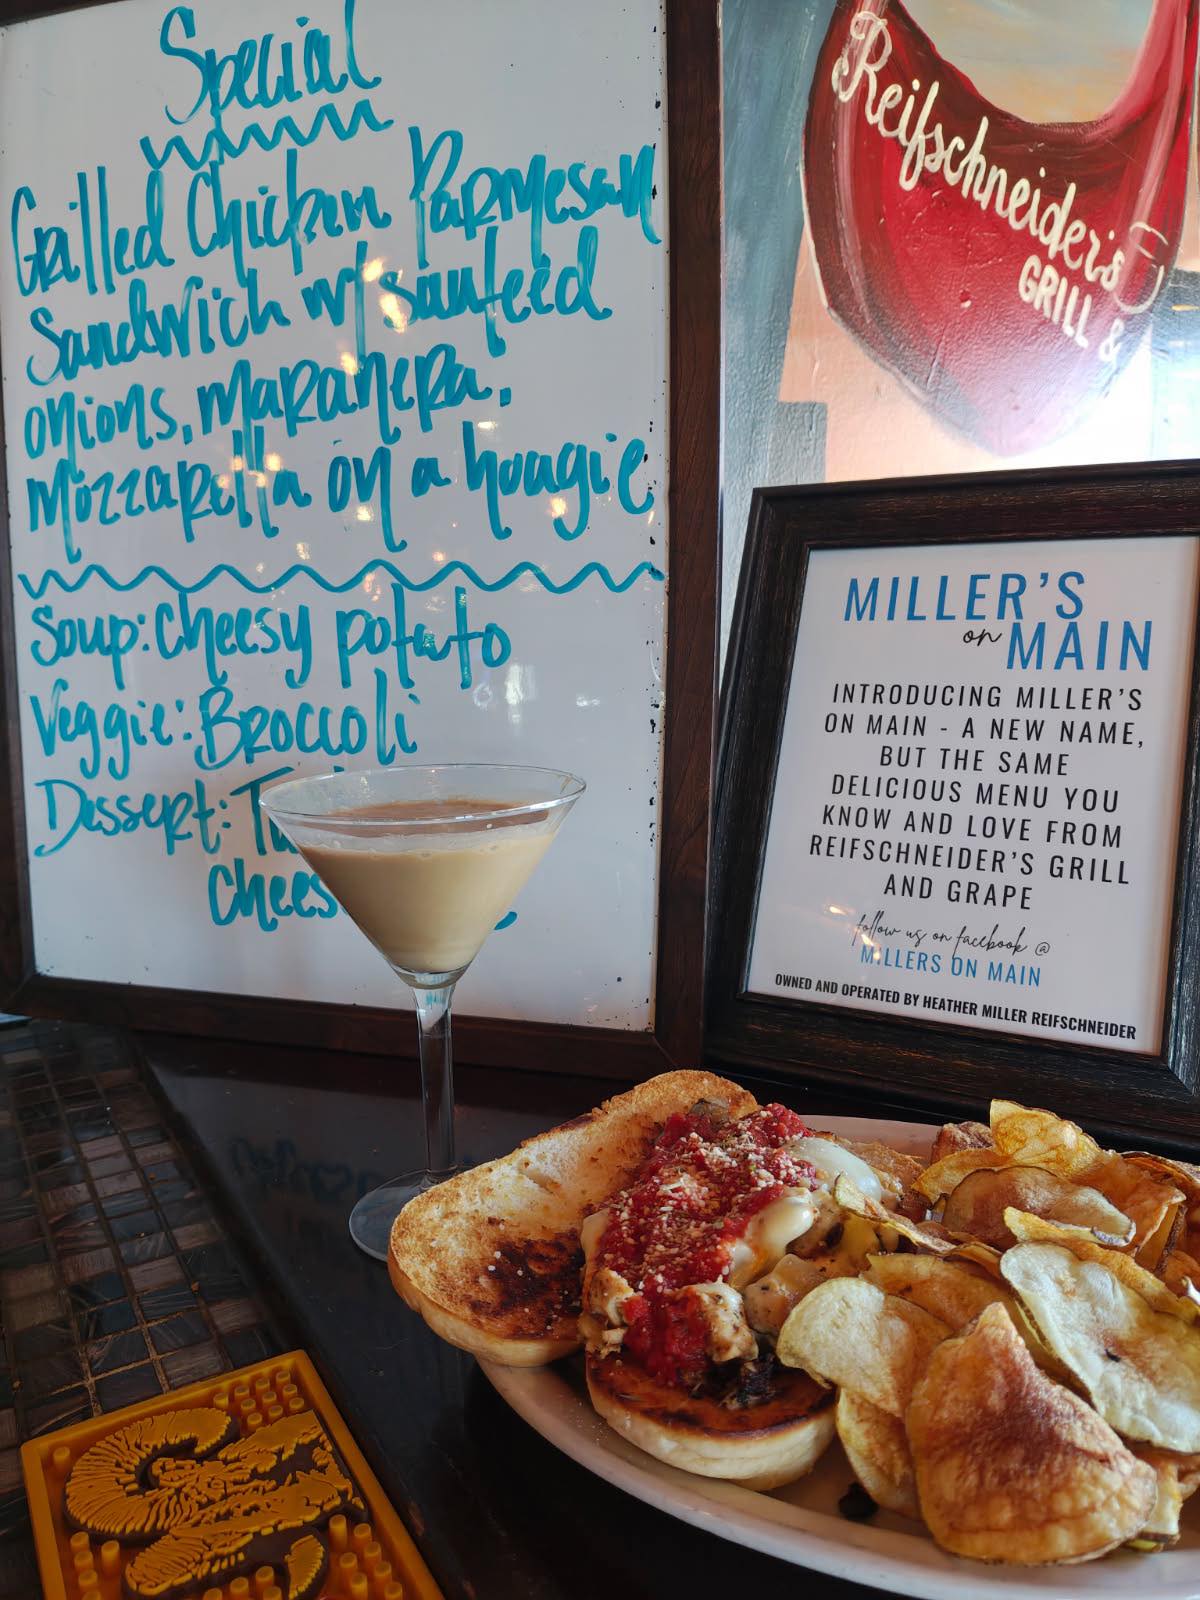 Special
Grilled Chicken Parmesan
Sandwich w/ sauteed
onions, maranera,
mozzarella on a hougie
Soup: Cheesy potato
Veggie: Broccoli
Dessert:
Reifschneider's
GRILL &
MILLER'S
on MAIN
INTRODUCING MILLER'S
ON MAIN - A NEW NAME,
BUT THE SAME
DELICIOUS MENU YOU
KNOW AND LOVE FROM
REIFSCHNEIDER'S GRILL
AND GRAPE
follow us on facebook @
MILLERS ON MAIN
OWNED AND OPERATED BY HEATHER MILLER REIFSCHNEIDER